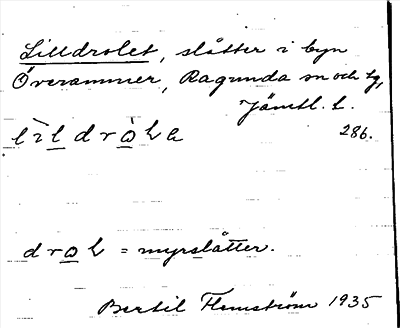 Lilldrolet, slåtter i byn
Överammer, Ragunda sn och tg,
Jämtl. l.
286.
lìl dròla
drol = myrslåtter.
Bertil Flemström 1935